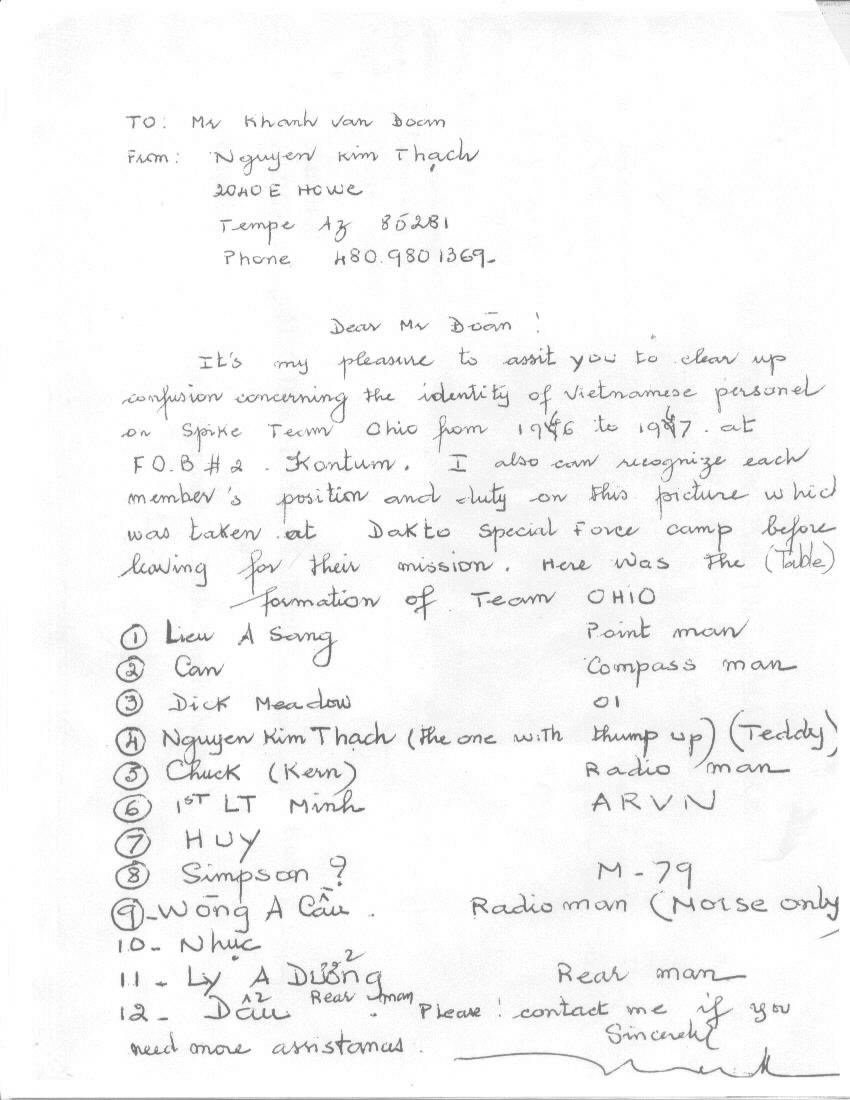 TO: Mr Khanh Van Doan
From: Nguyen Kim Thạch
2040 E Howe
Tempe Az 85281
Phone 480.980 1369-
Dear Mr Doān !
It's my pleasure to assit you to clear up
confusion concerning the identity of Vietnamese personel
on Spike Team Ohio from 1966 to 1967. at
F.O.B # 2. Kontum. I also can recognize each
member's position and duty on this picture which
was taken at Dakto Special Force camp before
leaving for their mission. Here was the (Table)
formation of Team OHIO
① Lieu A Sang Point man
② Can Compass man
③ Dick Meadow 01
④ Nguyen Kim Thạch (the one with thump up) (Teddy)
⑤ Chuck (Kern) Radio man
⑥ 1ST LT Minh ARVN
⑦ HUY
⑧ Simpson ? M-79
⑨-Wòng A Cầu. Radio man (Morse only
10- Nhục
11- Ly A Dưỡng 2 Rear man
12- Dẩu 2 Rear man. Please! contact me if you
need more assistances. Sincerely